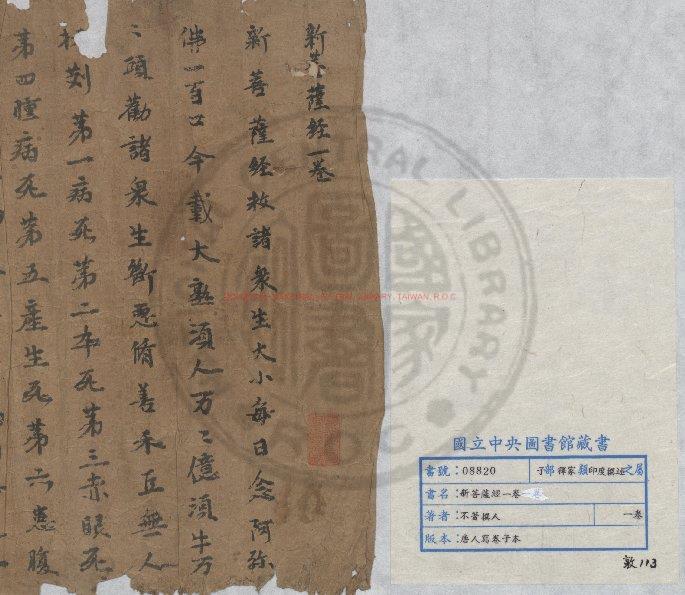 新菩薩経一卷
新菩薩経救諸衆生大小每日念阿弥
佛一百口今載大熟須人万〻億須牛万
〻頭勸諸衆生斷惡脩善禾豆無人
刈第一病死第二卒死第三赤眼死
第四腫病死第五產生死第六患腹
CENTRAL LIBRARY
圖書
國家
R.O.C
CENTRAL LIBRARY, TAIWAN, R.O.C
國立中央圖書館藏書
書號:08820 子部釋家類印度撰述之屬
書名:新菩薩經一卷
著者:不著撰人 一卷
版本:唐人寫卷子本
敦113